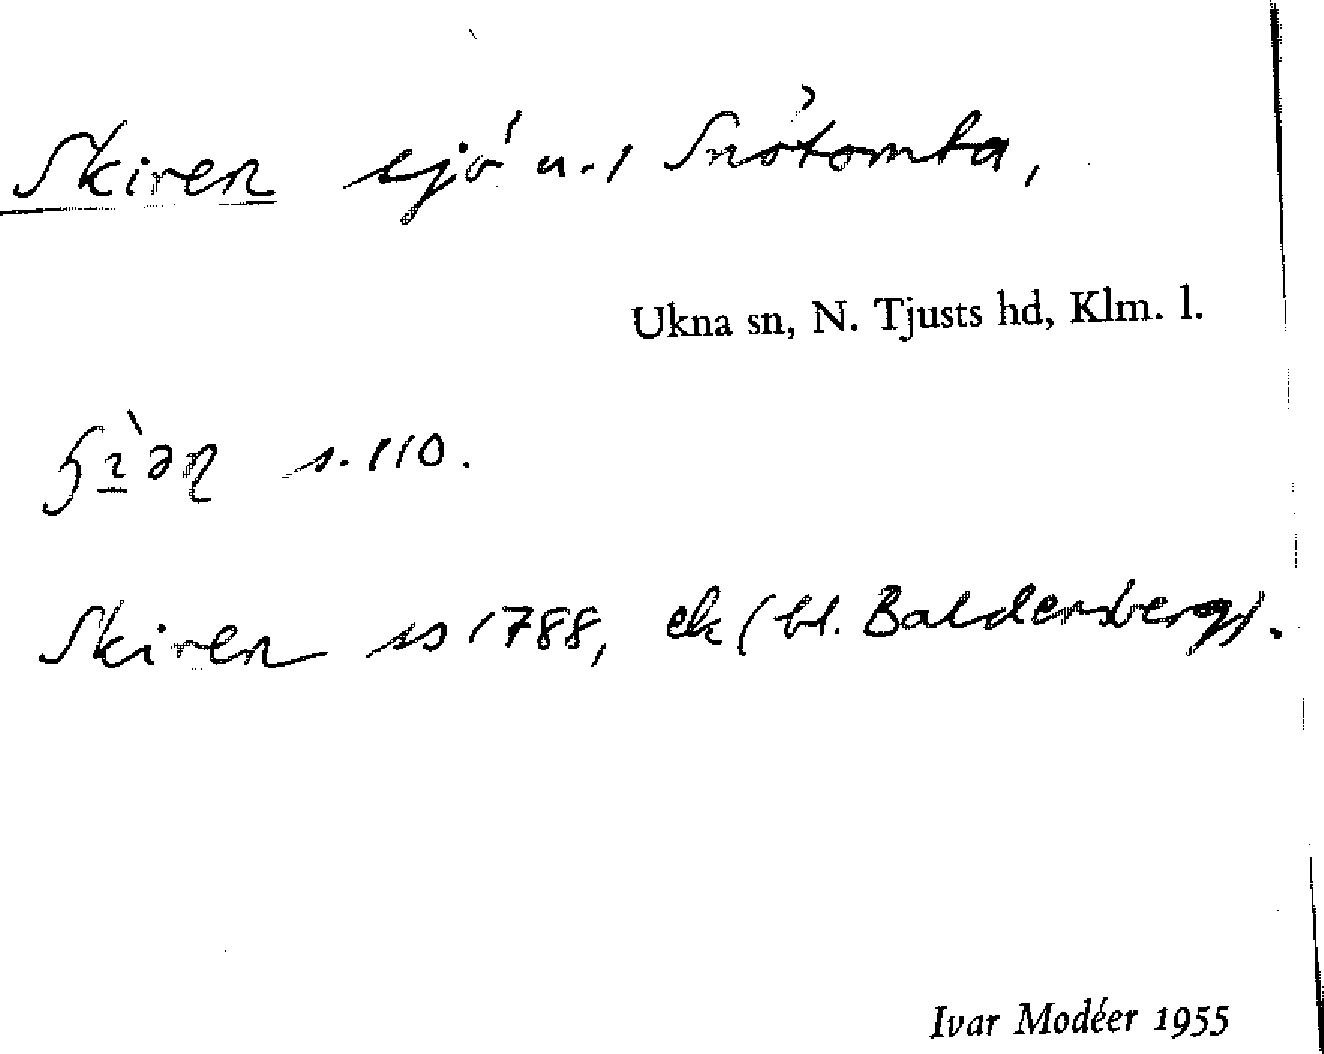 Skiren sjö u. Snötomta,
Ukna sn, N. Tjusts hd, Klm. l.
s. 110.
Skiren ss 1788, ek (bl. Baldersberg).
Ivar Modéer 1955